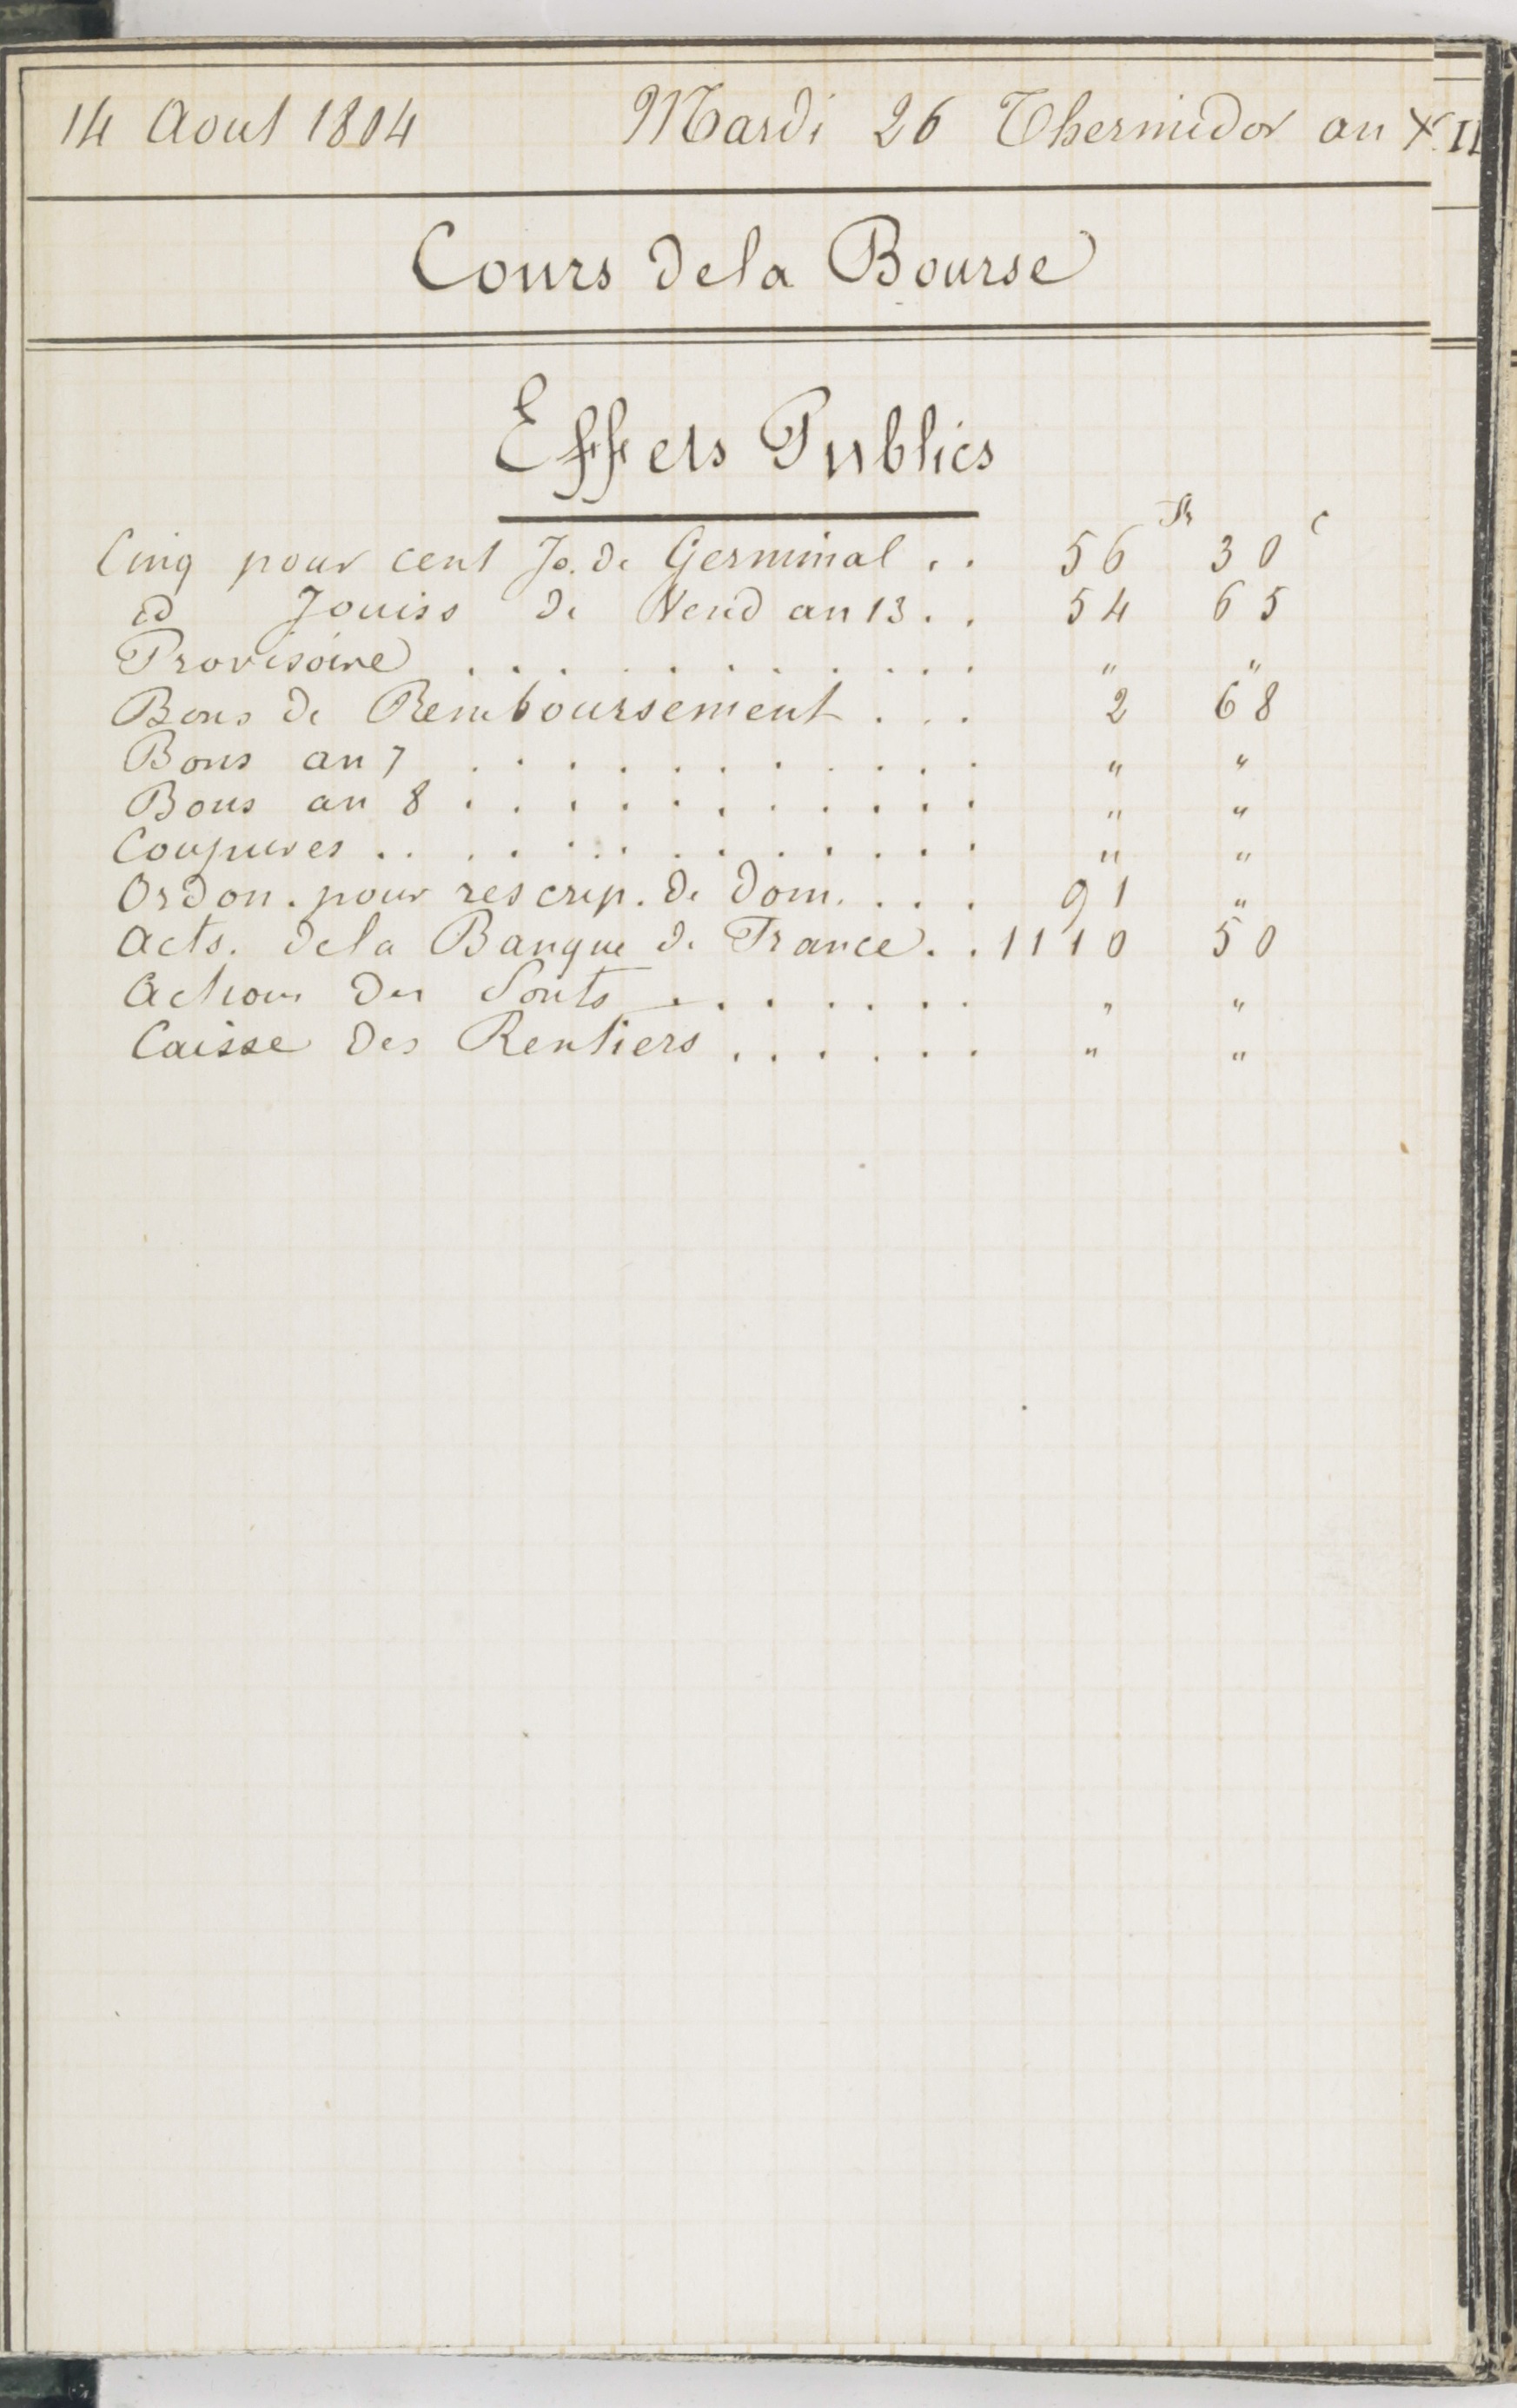 14 Aout 1804 Mardi 26 Thermidor an XII
Cours dela Bourse
Effets Publics
fr c
Cinq pour cent Jo. de Germinal . . 56 30
id Jouiss de Vend an 13 . . 54 65
Provisoire . . . . . . . . . . " "
Bons de Remboursement . . . 2 68
Bons an 7 . . . . . . . . . . . " "
Bons an 8 . . . . . . . . . . . " "
Coupures . . . . . . . . . . . . " "
Ordon. pour rescrip. de dom. . . . 91 "
Acts. dela Banque de France . . 1110 50
Actions des Ponts . . . . . . . " "
Caisse des Rentiers . . . . . . " "